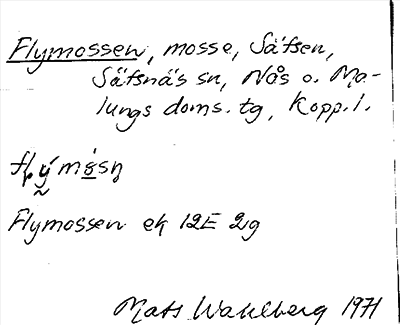 Flymossen, mosse, Säfsen,
Säfsnäs sn, Nås o. Ma-
lungs doms. tg, Kopp. l.
Flymossen ek 12E 2g
Mats Wahlberg 1971